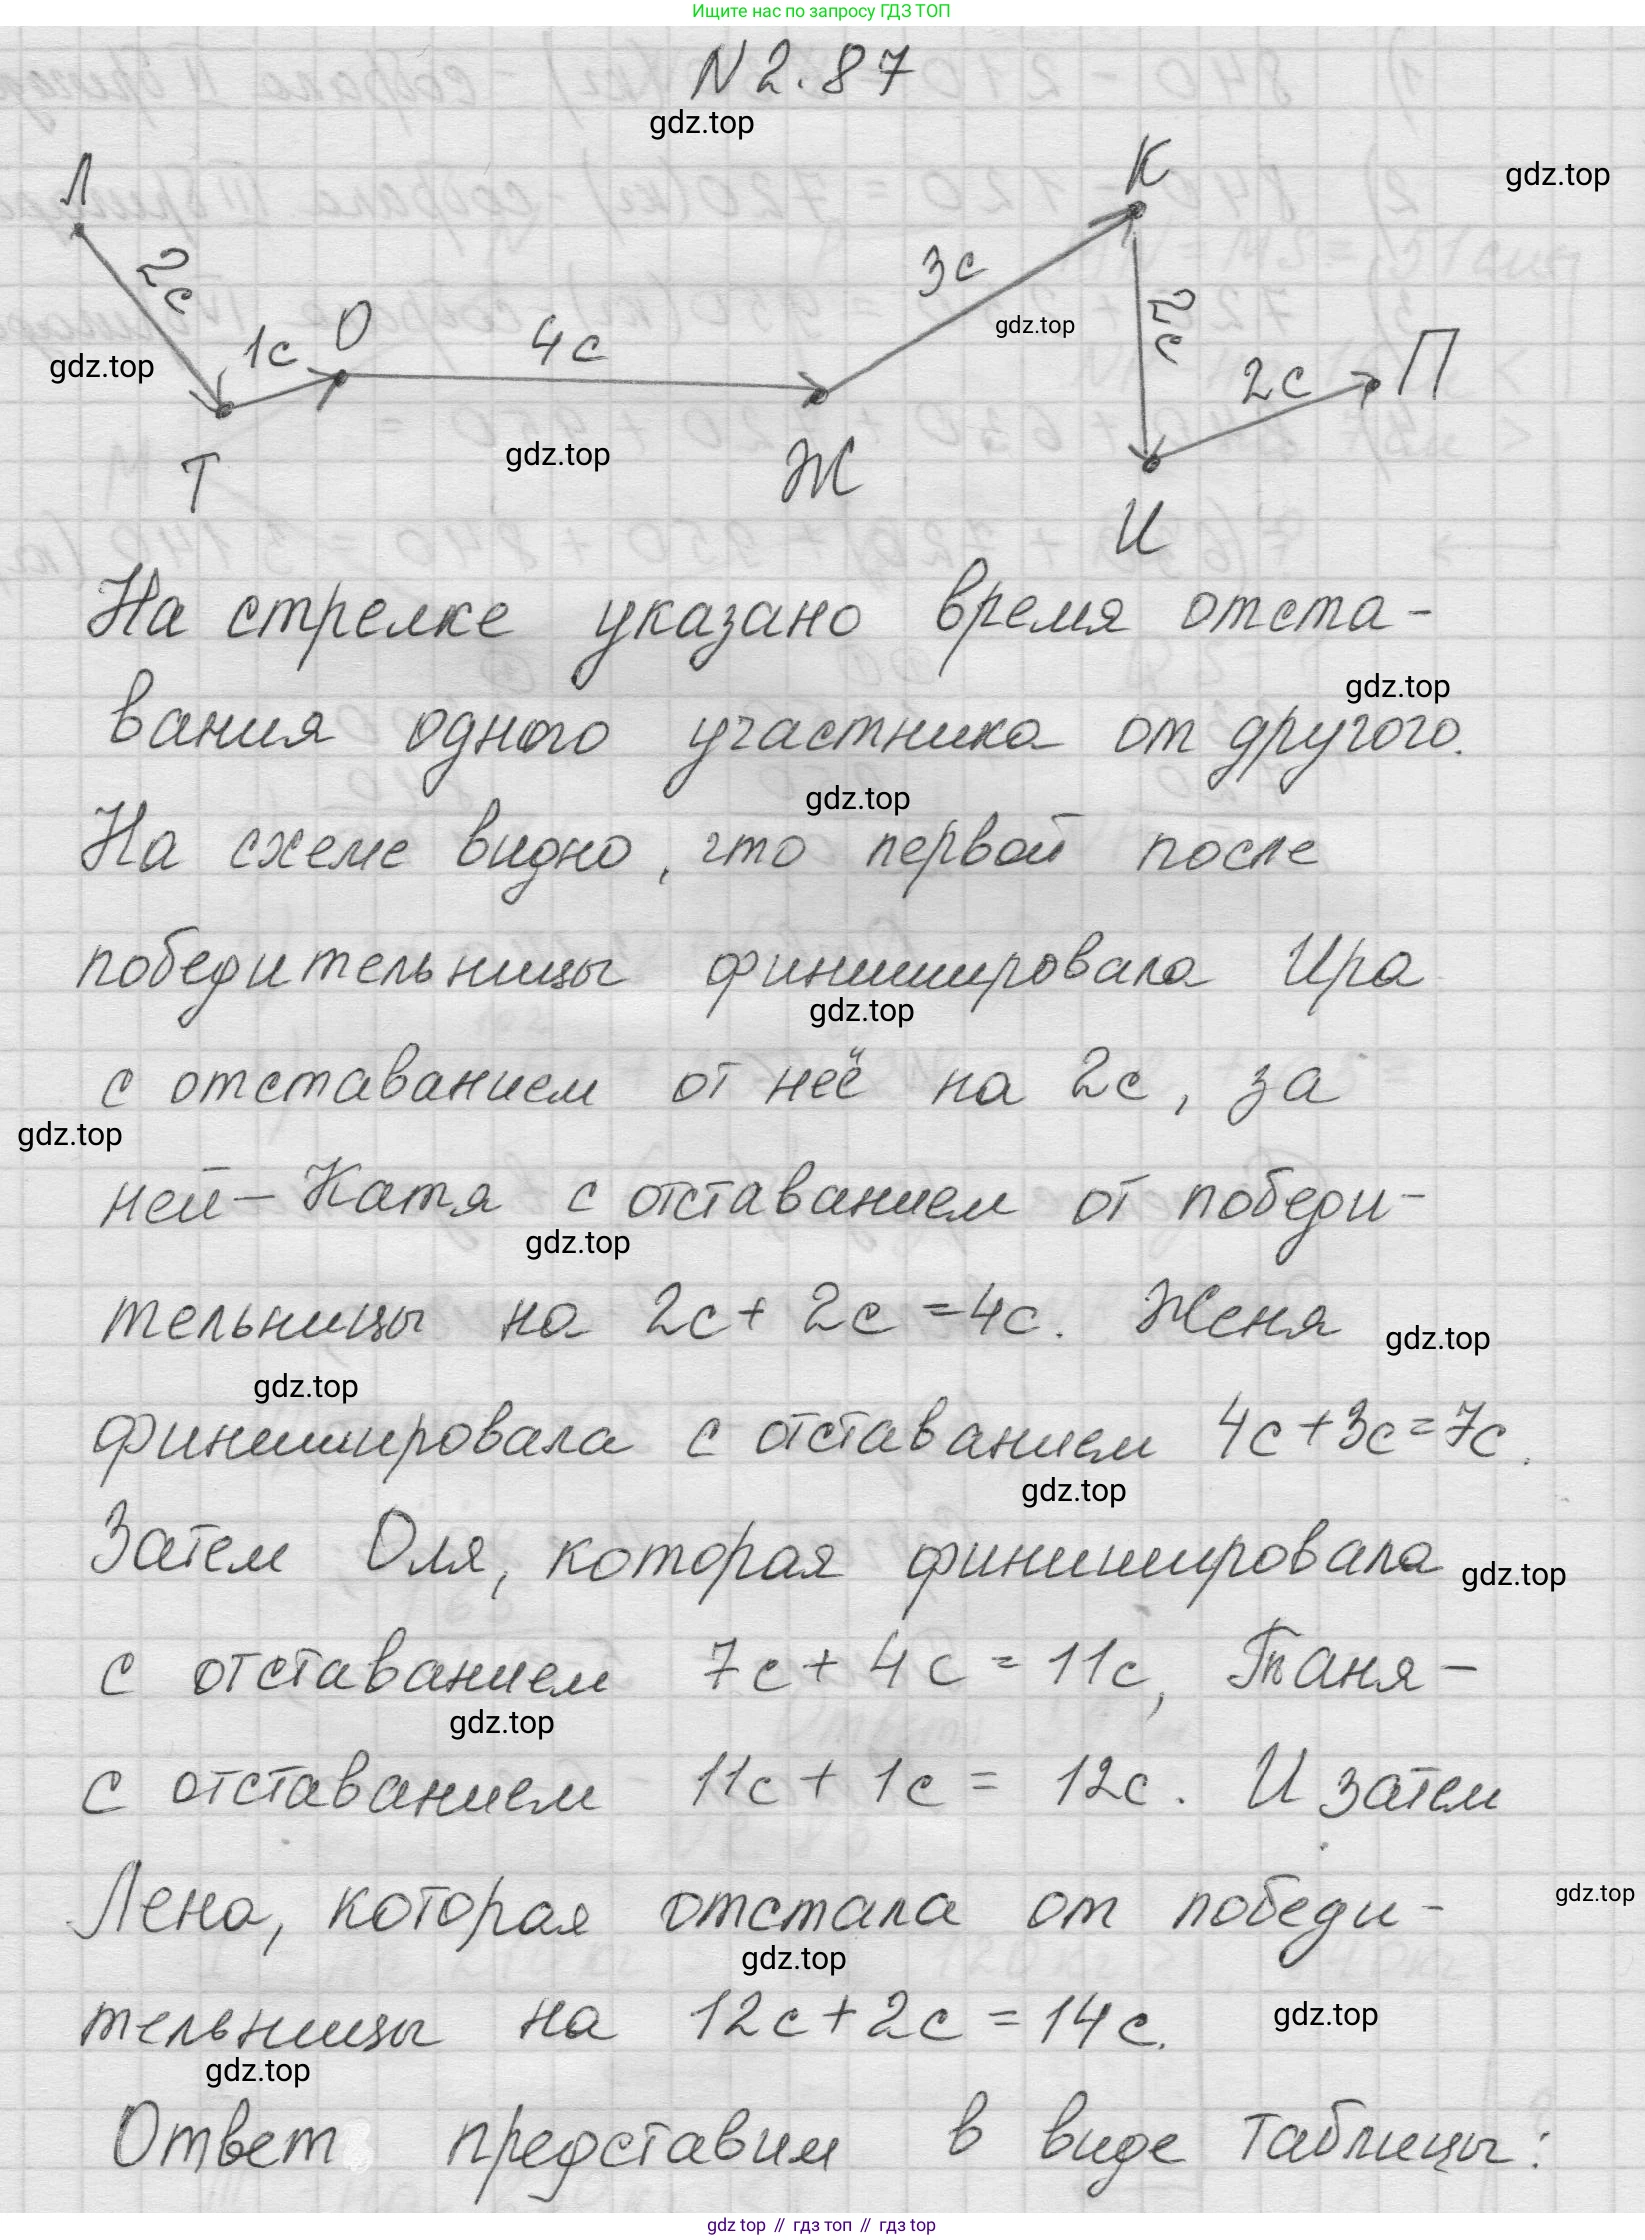 Ищите нас по запросу ГДЗ ТОП
N 2.87
gdz.top
Л
К
gdz.top
2с
3с
О
1с
4с
gdz.top
2с
П
gdz.top
2с
gdz.top
Т
Ж
И
На стрелке указано время отста-
gdz.top
вания одного участника от другого.
gdz.top
На схеме видно, что первой после
победительницы финишировала Ира
gdz.top
с отставанием от неё на 2с, за
gdz.top
ней - Катя с отставанием от победи-
gdz.top
тельницы на 2с + 2с = 4с. Женя
gdz.top
gdz.top
финишировала с отставанием 4с + 3с = 7с.
gdz.top
Затем Оля, которая финишировала
gdz.top
с отставанием 7с + 4с = 11с, Таня -
gdz.top
с отставанием 11с + 1с = 12с. И затем
Лена, которая отстала от победи-
gdz.top
gdz.top
тельницы на 12с + 2с = 14с.
gdz.top
gdz.top
Ответ представим в виде таблицы:
gdz top // гдз топ // гдз top